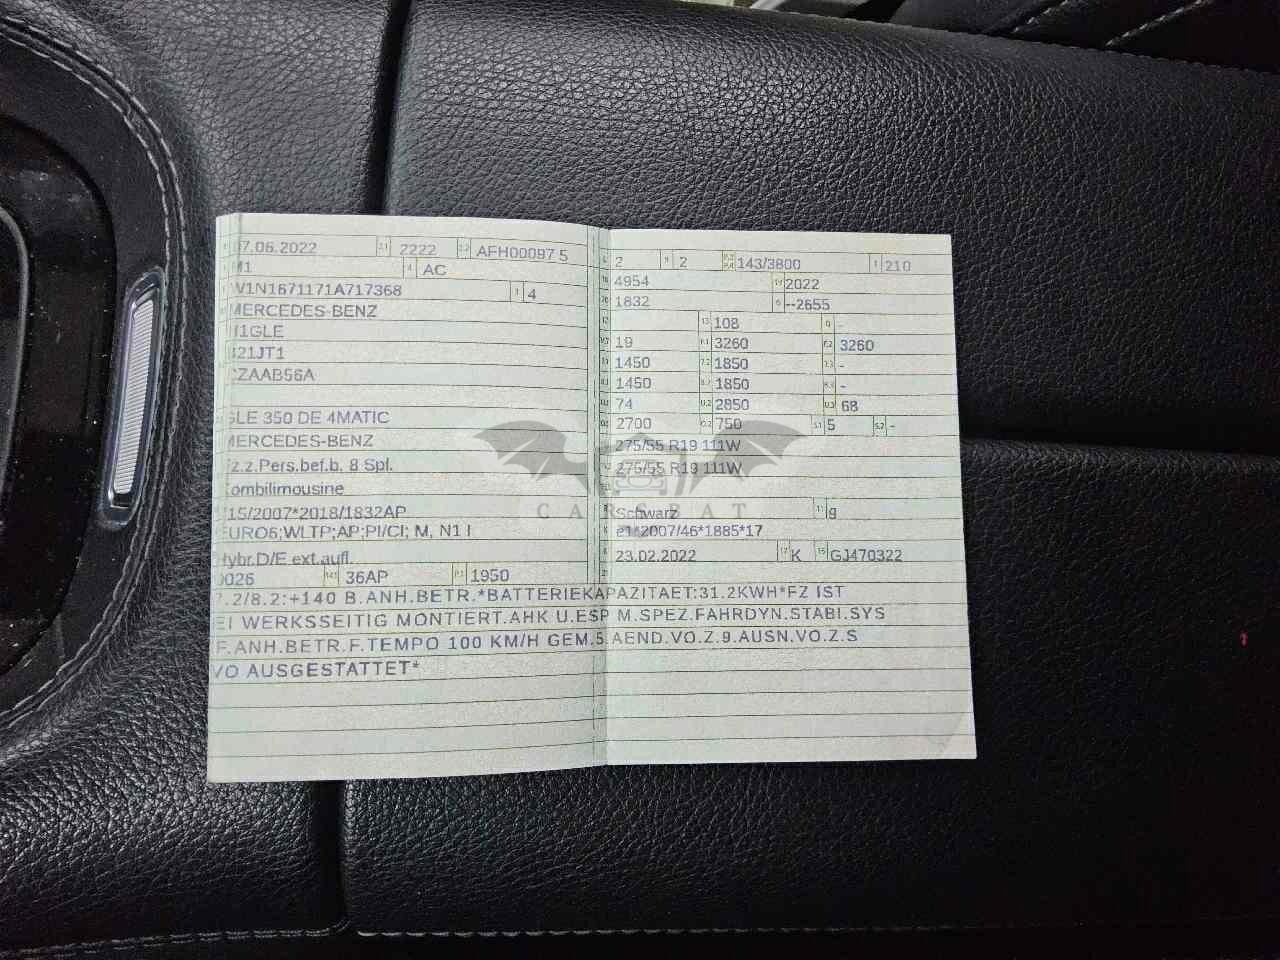 07.06.2022 2.1 2222 2.2 AFH00097 5
M1 4 AC
W1N1671171A717368 4
MERCEDES-BENZ
H1GLE
421JT1
CZAAB56A
GLE 350 DE 4MATIC
MERCEDES-BENZ
z.z.Pers.bef.b. 8 Spl.
ombilimousine
15/2007*2018/1832AP
EURO6;WLTP;AP;PI/CI; M, N1 I
Hybr.D/E ext.aufl.
0026 14.1 36AP P.1 1950
7.2/8.2:+140 B.ANH.BETR.*BATTERIEKAPAZITAET:31.2KWH*FZ IST
EI WERKSSEITIG MONTIERT.AHK U.ESP M.SPEZ.FAHRDYN.STABI.SYS
F.ANH.BETR.F.TEMPO 100 KM/H GEM.5.AEND.VO.Z.9.AUSN.VO.Z.S
VO AUSGESTATTET*
2 9 2 P.2 P.4 143/3800 T 210
18 4954 19 2022
20 1832 G --2655
12 13 108 Q -
V.7 19 F.1 3260 F.2 3260
7.1 1450 7.2 1850 7.3 -
8.1 1450 8.2 1850 8.3 -
U.1 74 U.2 2850 U.3 68
O.1 2700 O.2 750 S.1 5 S.2 -
275/55 R19 111W
275/55 R19 111W
CARSBAT
Schwarz 11 g
K e1*2007/46*1885*17
6 23.02.2022 17 K 16 GJ470322
21